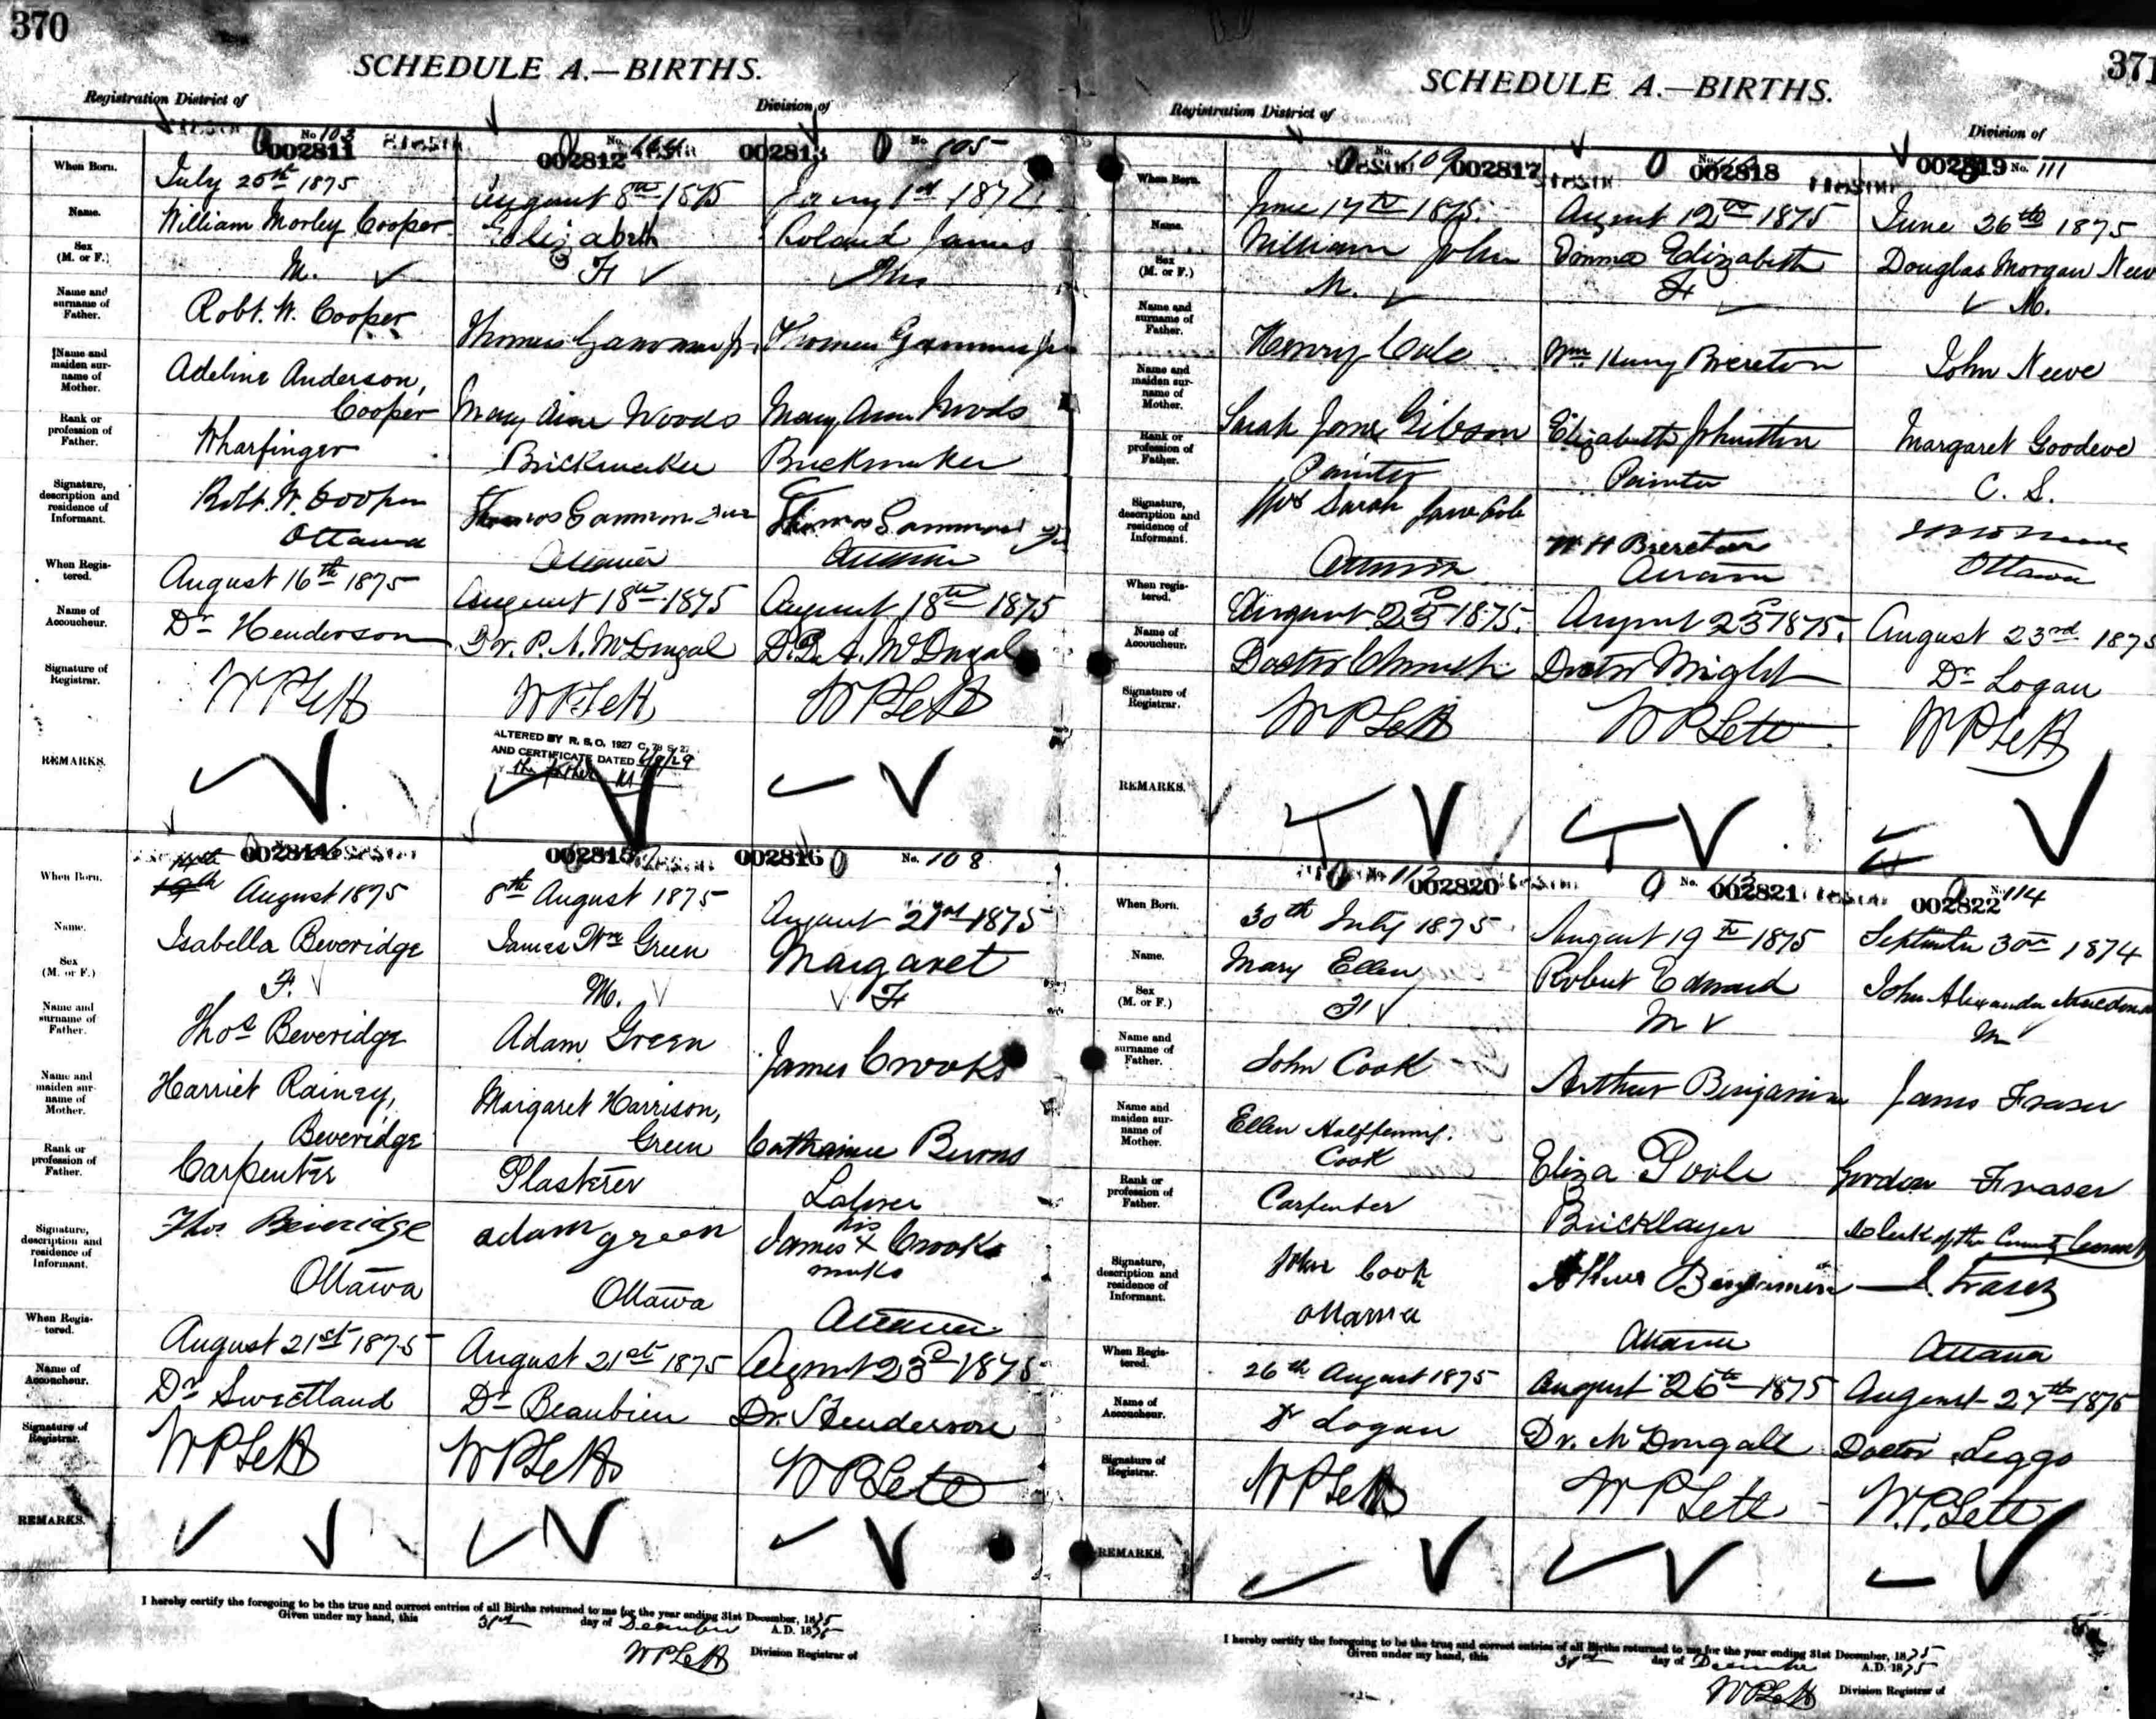 370
SCHEDULE A.—BIRTHS.
Registration District of
Division of
No 103
002811
When Born.
July 20th 1875
Name.
William Morley Cooper
Sex
(M. or F.)
M.
Name and
surname of
Father.
Robt. W. Cooper
Name and
maiden sur-
name of
Mother.
Adeline Anderson,
Cooper
Rank or
profession of
Father.
Wharfinger
Signature,
description and
residence of
Informant.
Robt. W. Cooper
Ottawa
When Regis-
tered.
August 16th 1875
Name of
Accoucheur.
Dr Henderson
Signature of
Registrar.
WPLett
REMARKS.
002812
No.
August 8th 1875
Elizabeth
F
Thomas Gammon Jr.
Mary Ann Woods
Brickmaker
Thomas Gammon Jur
Ottawa
August 18th 1875
Dr. P. A. McDougal
WPLett
ALTERED BY R. S. O. 1927 C. 78 S. 27
AND CERTIFICATE DATED 6/9/29
the father
002813
No. 105
1st
Roland James
Thomas Gammon Jr
Mary Ann Woods
Brickmaker
Thomas Gammon Jr
Ottawa
August 18th 1875
Dr P. A. McDougal
WPLett
002814
When Born.
14th
19th August 1875
Name.
Isabella Beveridge
Sex
(M. or F.)
F.
Name and
surname of
Father.
Thos Beveridge
Name and
maiden sur-
name of
Mother.
Harriet Rainey,
Beveridge
Rank or
profession of
Father.
Carpenter
Signature,
description and
residence of
Informant.
Thos Beveridge
Ottawa
When Regis-
tered.
August 21st 1875
Name of
Accoucheur.
Dr Sweetland
Signature of
Registrar.
WPLett
REMARKS.
002815
8th August 1875
James Wm Green
M.
Adam Green
Margaret Harrison,
Green
Plasterer
adam green
Ottawa
August 21st 1875
Dr Beaubien
WPLett
002816
No. 108
August 21st 1875
Margaret
F
James Crooks
Catharine Burns
Laborer
his
James X Crooks
marks
Ottawa
August 23d 1875
Dr. Henderson
WPLett
I hereby certify the foregoing to be the true and correct entries of all Births returned to me for the year ending 31st December, 1875
Given under my hand, this 31st day of December A.D. 1875
WPLett Division Registrar of
371
SCHEDULE A.—BIRTHS.
Registration District of
Division of
No. 109
002817
When Born.
June 17th 1875.
Name.
William John
Sex
(M. or F.)
M.
Name and
surname of
Father.
Henry Cole
Name and
maiden sur-
name of
Mother.
Sarah Jane Gibson
Rank or
profession of
Father.
Painter
Signature,
description and
residence of
Informant.
Mrs Sarah Jane Cole
Ottawa
When regis-
tered.
August 23d 1875.
Name of
Accoucheur.
Doctor
Signature of
Registrar.
WPLett
REMARKS.
No.
002818
August 12th 1875
Elizabeth
F
Wm Henry Brereton
Elizabeth Johnston
Painter
W H Brereton
Ottawa
August 23d 1875.
Doctor Wright
WPLett
002819
No. 111
June 26th 1875
Douglas Morgan Neeve
M.
John Neeve
Margaret Goodeve
C. S.
Ottawa
August 23rd 1875
Dr Logan
WPLett
No. 112
002820
When Born.
30th July 1875
Name.
Mary Ellen
Sex
(M. or F.)
F
Name and
surname of
Father.
John Cook
Name and
maiden sur-
name of
Mother.
Ellen
Cook
Rank or
profession of
Father.
Carpenter
Signature,
description and
residence of
Informant.
John Cook
Ottawa
When Regis-
tered.
26th August 1875
Name of
Accoucheur.
Dr Logan
Signature of
Registrar.
WPLett
REMARKS.
No. 113
002821
August 19th 1875
Robert Edward
M
Arthur Benjamin
Eliza Poole
Bricklayer
Arthur Benjamin
Ottawa
August 26th 1875
Dr. McDougall
WPLett
No. 114
002822
September 30th 1874
John Alexander
M
James Fraser
Gordon Fraser
Clerk of the County
J. Fraser
Ottawa
August 27th 1875
Doctor Leggo
W.P. Lett
I hereby certify the foregoing to be the true and correct entries of all Births returned to me for the year ending 31st December, 1875
Given under my hand, this 31st day of December A.D. 1875
WPLett Division Registrar of